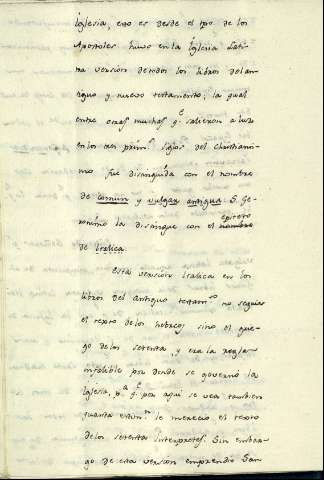 Iglesia, esto es desde el tpo de los
Apostoles huvo en la Iglesia Lati-
na version de todos los libros del an-
tiguo y nuevo testamento; la qual
entre otras muchas q.e salieron a luz
en los tres prim.s siglos del christianis-
mo fue distinguida con el nombre
de comun y vulgar antigua. S. Ge-
ronimo la distingue con el nombre epiteto
de Italica.
Esta version Italica en los
libros del antiguo testam.to no seguia
el texto de los hebreos, sino el grie-
go de los setenta, y era la regla
infalible por donde se governó la
Iglesia, p.a q.e por aqui se vea tambien
quanta estim.n le merecio el texto
de los setenta Interpretes. Sin embar-
go de esta version emprendio San